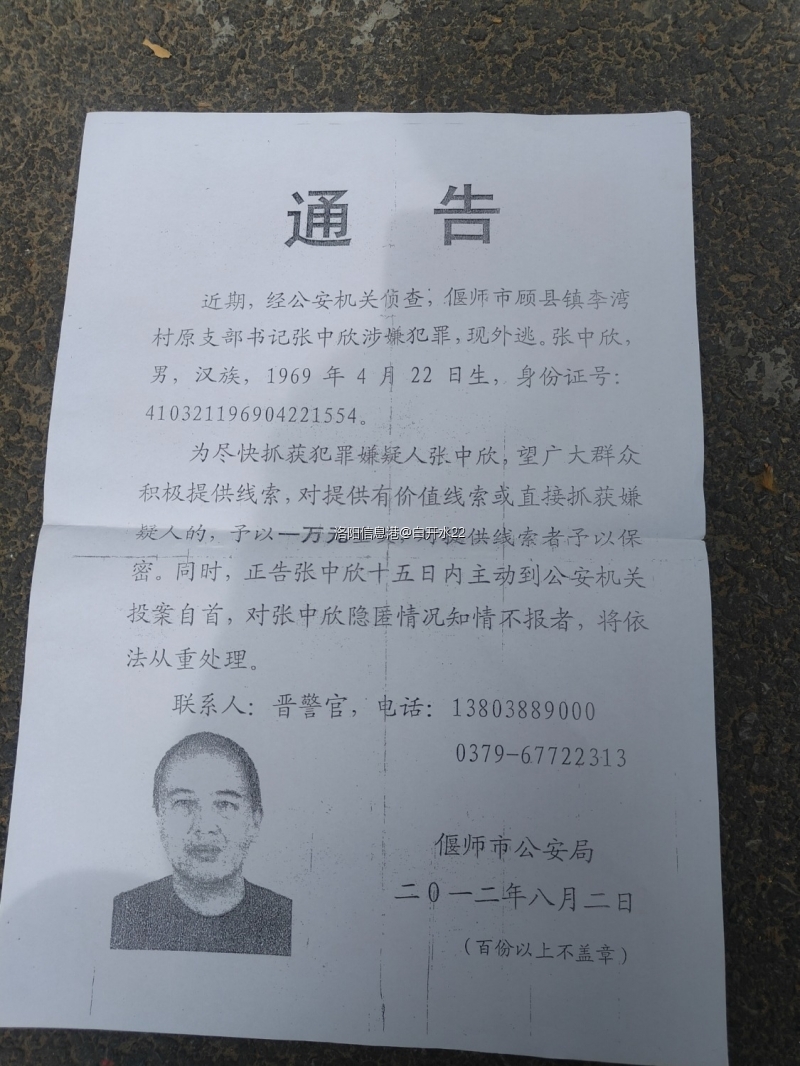 通 告
近期，经公安机关侦查，偃师市顾县镇李湾
村原支部书记张中欣涉嫌犯罪，现外逃。张中欣，
男，汉族，1969 年 4 月 22 日生，身份证号：
410321196904221554。
为尽快抓获犯罪嫌疑人张中欣，望广大群众
积极提供线索，对提供有价值线索或直接抓获嫌
疑人的，予以一万元 提供线索者予以保
洛阳信息港@白开水22
密。同时，正告张中欣十五日内主动到公安机关
投案自首，对张中欣隐匿情况知情不报者，将依
法从重处理。
联系人：晋警官，电话：13803889000
0379-67722313
偃师市公安局
二0一二年八月二日
（百份以上不盖章）